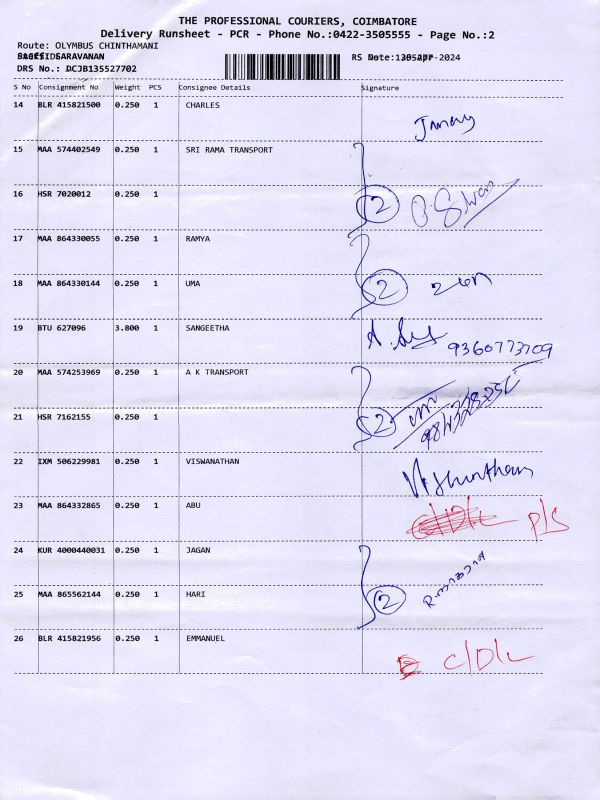 THE PROFESSIONAL COURIERS, COIMBATORE
Delivery Runsheet - PCR - Phone No.:0422-3505555 - Page No.:2
Route: OLYMBUS CHINTHAMANI
SARAVANAN RS -2024
DRS No.: DCJB135527702
S No Consignment No Weight PCS Consignee Details Signature
14 BLR 415821500 0.250 1 CHARLES
15 MAA 574402549 0.250 1 SRI RAMA TRANSPORT
16 HSR 7020012 0.250 1
2
17 MAA 864330055 0.250 1 RAMYA
18 MAA 864330144 0.250 1 UMA
2
19 BTU 627096 3.800 1 SANGEETHA
9360773709
20 MAA 574253969 0.250 1 A K TRANSPORT
21 HSR 7162155 0.250 1
2
22 IXM 506229981 0.250 1 VISWANATHAN
23 MAA 864332865 0.250 1 ABU
P/S
24 KUR 4000440031 0.250 1 JAGAN
25 MAA 865562144 0.250 1 HARI
2
26 BLR 415821956 0.250 1 EMMANUEL
C/D/L